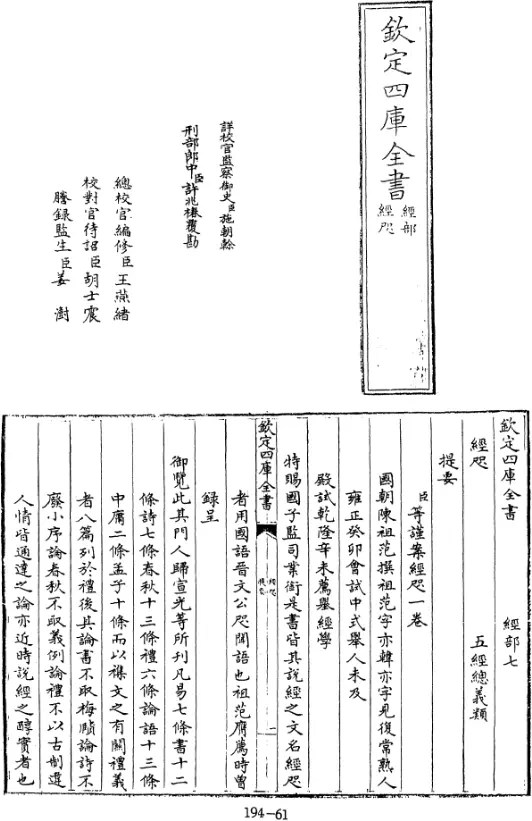 欽定四庫全書
經部
經咫
詳校官監察御史臣施朝幹
刑部郎中臣許兆椿覆勘
總校官編修臣王燕緒
校對官待詔臣胡士震
謄錄監生臣姜澍
欽定四庫全書
經部七
經咫
五經總義類
提要
臣等謹案經咫一卷
國朝陳祖范撰祖范字亦韓亦字見復常熟人
雍正癸卯會試中式舉人未及
殿試乾隆辛未薦舉經學
特賜國子監司業銜是書皆其說經之文名經咫
欽定四庫全書
經咫
提要
一
者用國語晉文公咫聞語也祖范膺薦時曽
錄呈
御覽此其門人歸宣光等所刋凡易七條書十二
條詩七條春秋十三條禮六條論語十三條
中庸二條孟子十條而以襍文之有關禮義
者八篇列於禮後其論書不取梅賾論詩不
廢小序論春秋不取義例論禮不以古制違
人情皆通達之論亦近時說經之醇實者也
194-61